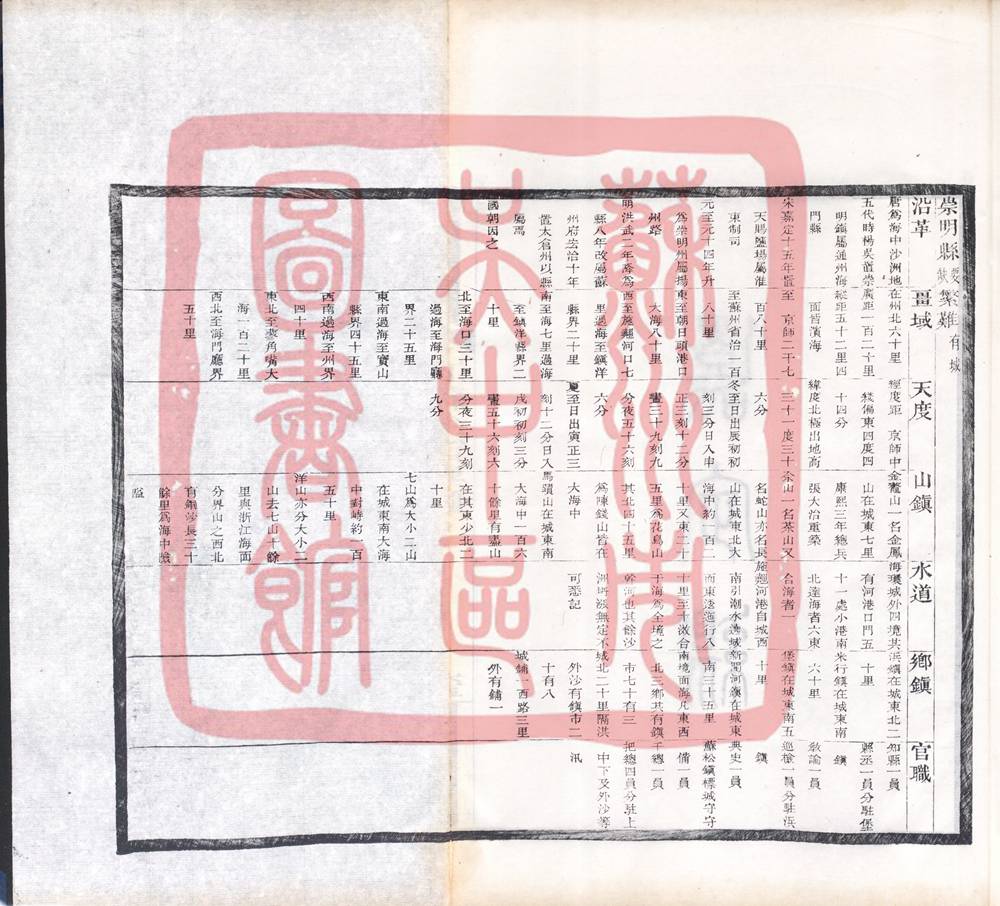 崇明縣 要缺 繁難 有城
沿革
唐為海中沙洲地
五代時楊吳置崇
明鎮屬通州海
門縣
宋嘉定十五年置
天賜鹽場屬淮
東制司
元至元十四年升
為崇明州屬揚
州路
明洪武二年降為
縣八年改屬蘇
州府宏治十年
置太倉州以縣
屬焉
國朝因之
畺域
在州北六十里
廣距一百二十里
縱距五十二里四
面皆濱海
至 京師二千七
百八十里
至蘇州省治一百
八十里
東至朝日頭港口
大海八十里
西至施翹河口七
里過海至鎮洋
縣界二十里
南至海七里過海
至鎮洋縣界二
十里
北至海口三十里
過海至海門廳
界二十五里
東南過海至寶山
縣界四十五里
西南過海至州界
四十里
東北至蓼角嘴大
海一百二十里
西北至海門廳界
五十里
天度
經度距 京師中
綫偏東四度四
十四分
緯度北極出地高
三十一度三十
六分
冬至日出辰初初
刻三分日入申
正三刻十二分
晝三十九刻九
分夜五十六刻
六分
夏至日出寅正三
刻十二分日入
戌初初刻三分
晝五十六刻六
分夜三十九刻
九分
山鎮
金鰲山一名金鳳
山在城東七里
康熙三年總兵
張大治重築
佘山一名茶山又
名蛇山亦名長
山在城東北大
海中約一百二
十里又東二十
五里為花鳥山
其北四十五里
為陳錢山皆在
大海中
馬蹟山在城東南
大海中一百六
十餘里有盡山
在其東少北二
十里
七山為大小二山
在城東南大海
中對峙約一百
五十里
洋山亦分大小二
山去七山十餘
里與浙江海面
分界山之西北
有鐵沙長三十
餘里為海中險
隘
水道
海環城外四境共
有河港口門五
十一處小港南
北達海者六東
合海者一
施翹河港自城西
南引潮水遶城
而東透迤行八
十里至十滧合
于海為全境之
幹河也其餘沙
洲坍漲無定不
可悉記
鄉鎮
浜鎮在城東北二
十里
米行鎮在城東南
六十里
堡鎮在城東南五
十里
新開河鎮在城東
南三十五里
南境面海凡東西
北三鄉共有鎮
市七十有三
城北二十里隔洪
外沙有鎮市二
十有八
城鋪一西路三里
外有鋪一
官職
知縣一員
縣丞一員分駐堡
鎮
教諭一員
巡檢一員分駐浜
鎮
典史一員
蘇松鎮標城守守
備一員
千總一員
把總四員分駐上
中下及外沙等
汛
蘇州市
吳中區
圖書館